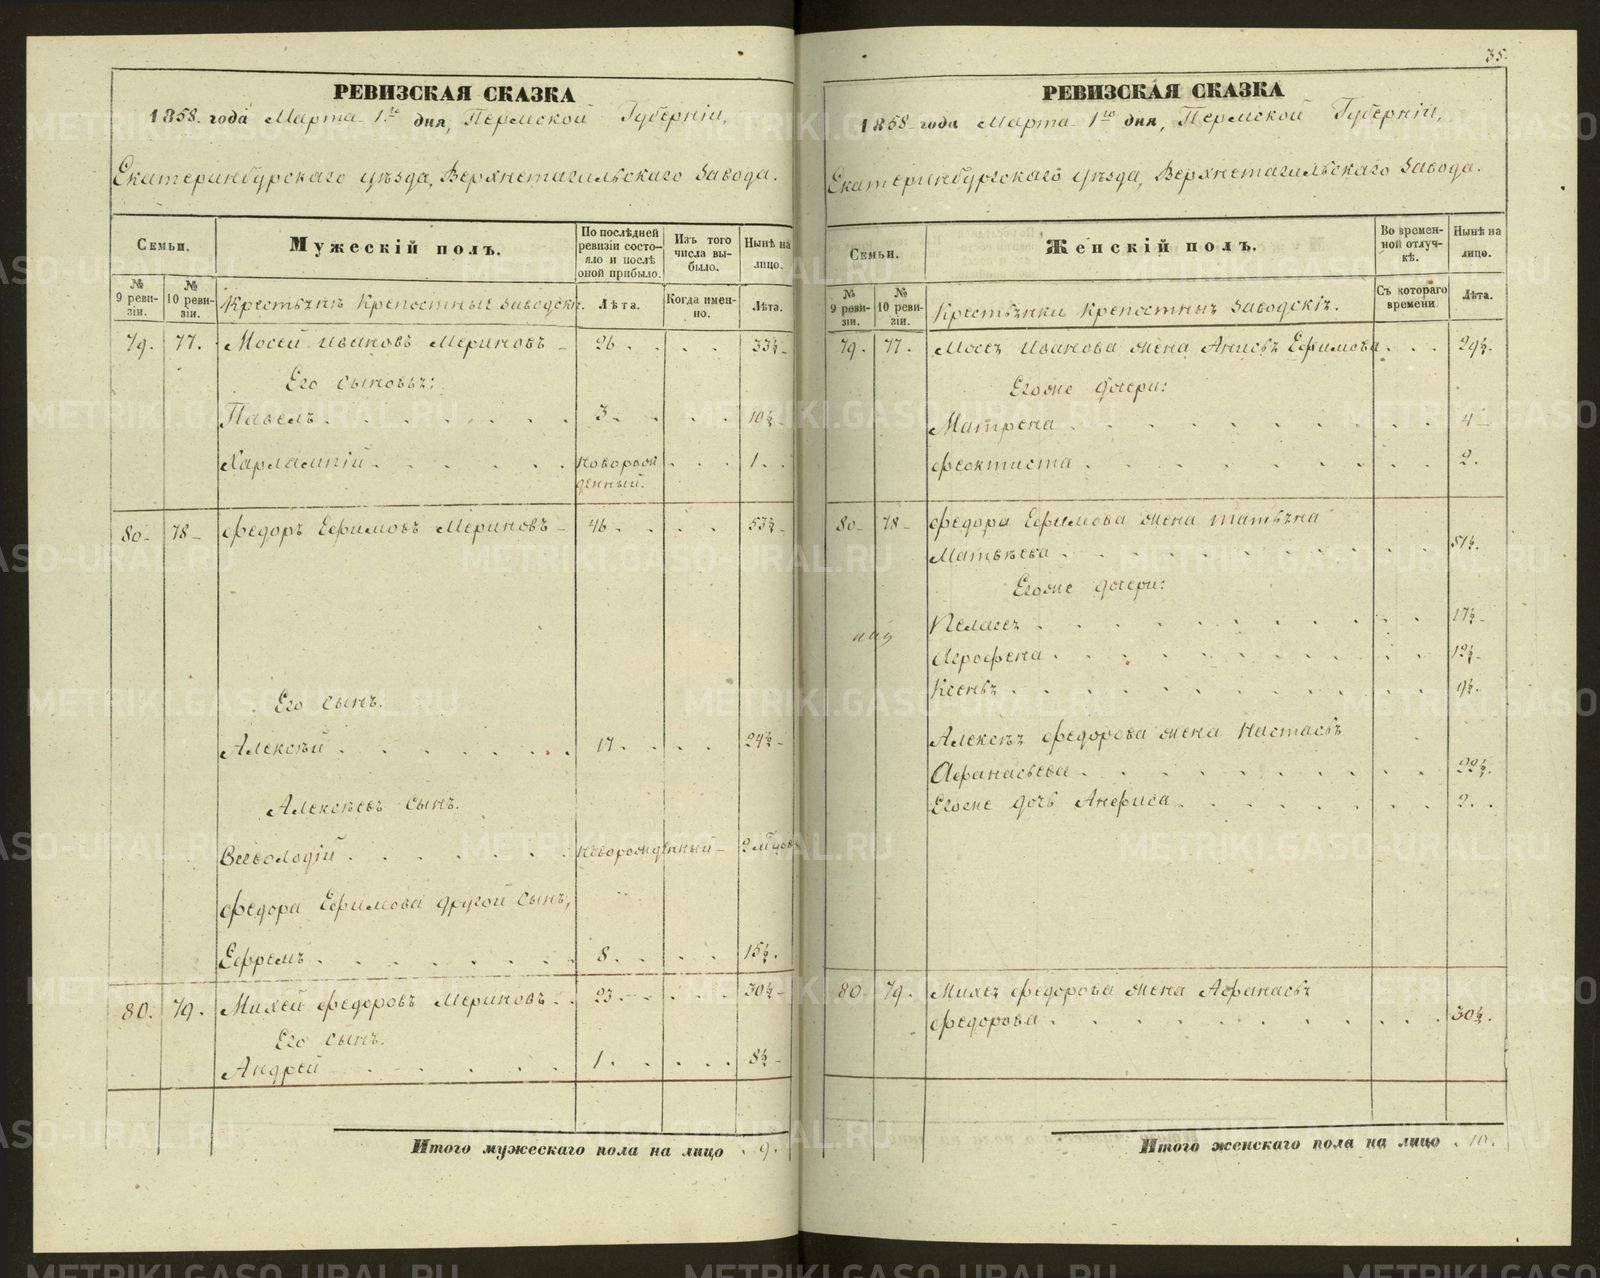 35.
РЕВИЗСКАЯ СКАЗКА
1858. года Марта 1го дня, Пермской Губерніи,
Екатеринбургскаго уѣзда, Верхнетагильскаго Завода.
Семьи.
Мужескій полъ.
По послѣдней ревизіи состояло и послѣ оной прибыло.
Изъ того числа выбыло.
Нынѣ на лицо.
№ 9 ревизіи.
№ 10 ревизіи.
Крестьянъ Крепостныхъ Заводскихъ.
Лѣта.
Когда именно.
Лѣта.
79. 77. Мосей Ивановъ Мериновъ 26. 33½
Его сыновья:
Павелъ 3 10½
Харлампій Новорожденный. 1.
80 78 Федоръ Ефимовъ Мериновъ 46 53½
Его сынъ.
Алексѣй 17. 24½
Алексѣевъ сынъ.
Всеволодій Новорожденный 2 мѣсяцовъ
Федора Ефимова другой сынъ,
Ефремъ 8. 15½.
80. 79. Михей Федоровъ Мериновъ 23 30½
Его сынъ.
Андрей 1. 8½
Итого мужескаго пола на лицо 9.
РЕВИЗСКАЯ СКАЗКА
1858 года Марта 1го дня, Пермской Губерніи,
Екатеринбургскаго уѣзда, Верхнетагильскаго Завода.
Семьи.
Женскій полъ.
Во временной отлучкѣ.
Нынѣ на лицо.
№ 9 ревизіи.
№ 10 ревизіи.
Крестьянки Крепостныя Заводскія.
Съ котораго времени
Лѣта.
79. 77. Мосея Иванова жена Анисья Ефимова 29½.
Егоже дочери:
Матрена 4
Феоктиста 2.
80 78 Федора Ефимова жена Татьяна
Матвѣева 51½.
Егоже дочери:
Пелагея 17½
Агрофена 12½
Ксенья 9½.
Алексѣя Федорова жена Настасья
Афанасьева 22½.
Егоже дочь Анфиса 2.
80 79. Михея Федорова жена Афанасья
Федорова 30½.
Итого женскаго пола на лицо 10.
METRIKI.GASO-URAL.RU